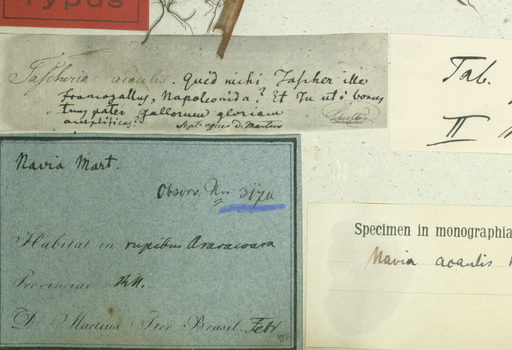 Typus
Tascheria acaulis. Quid mihi Tascher ille
francogallus, Napoleonida? Et Tu uti bonus
tuus pater gallorum gloriam
amplificas?
Sept. 
Tab.
II
Navia Mart.
Observ. No 3170
Habitat in rupibus Araracoara
Provinciae
D. Martius Iter Brasil. Febr
Specimen in monographia
Navia acaulis